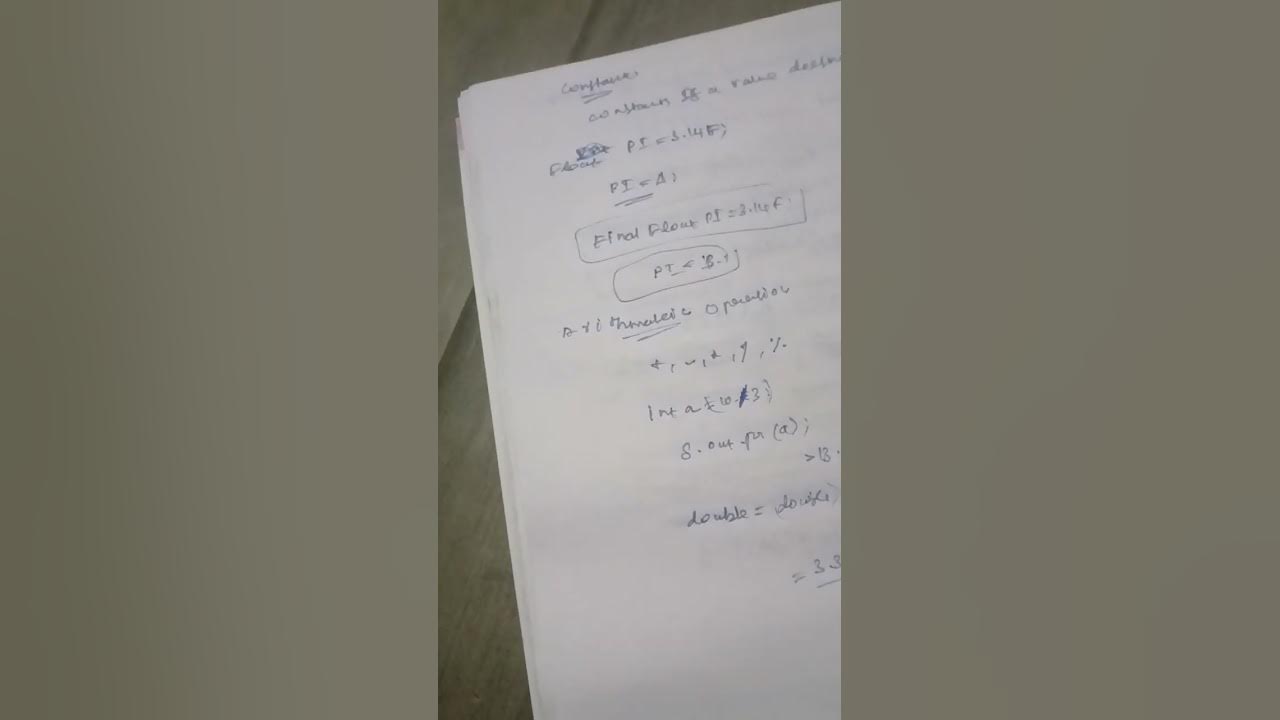 constant
constant If a value doesn
Float PI = 3.14F;
PI = A;
Final Float PI = 3.14F;
PI =
Arithmatic Operation
+, -, *, /, %
Int a = (10 3);
S.out.pr (a);
>13.
double = (double)
= 33